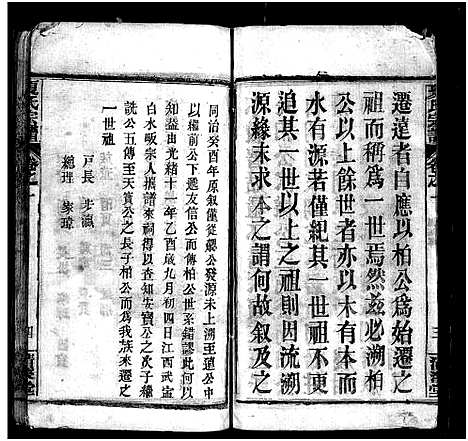 遷遠者自應以柏公為始遷之
祖而稱為一世焉然亦必溯柏
公以上餘世者亦以木有本而
水有源若僅紀其一世而不溯
追其一世以上之祖
源緣末求本之謂何故叙及之
同治癸酉年原叙僅從嚴公發源未上溯至遠公中
以繼前公下遞友信公而僃傳柏公世系錯謬此何以
知蓋由光緒十一年乙酉歲九月初四日江西武甯
白水畈宗人攜譜來祠得以查知安寶公之次子總
洗公五傳至天貴公之長子柏公而來遷之
一世祖
戶長 步瀛
總理 家璋
夏氏宗譜